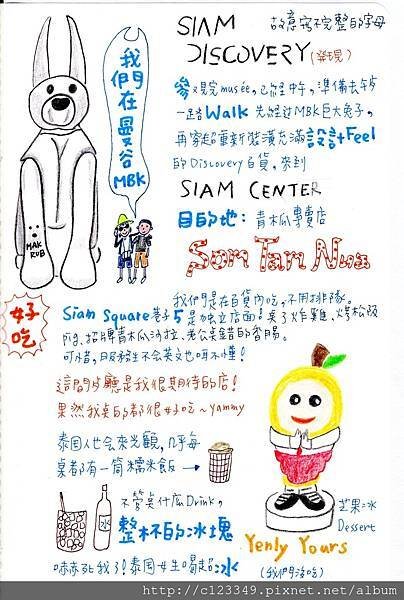 SIAM
DISCOVERY (發現)
故意寫不完整的字母
我們在曼谷
MBK
參觀完musée,已經中午,準備去午
一路Walk 先經過MBK巨大兔子,
再穿超重新裝潢充滿設計Feel
的Discovery百貨,來到
SIAM CENTER
目的地:青木瓜專賣店
Som Tam Nua
MAK
RUB
好吃
我們是在百貨內吃,不用排隊。
Siam Square巷子5是獨立店面!點了炸雞、烤松阪
pig、招牌青木瓜沙拉、老公點錯的香腸。
可惜,服務生不會英文也聽不懂!
這間餐廳是我很期待的店!
果然我點的都很好吃~yammy
泰國人也會來光顧,几乎每
桌都有一筒糯米飯→
不管點什麼Drink,
整杯的冰塊
嚇死我了!泰國女生喝超冰
芒果冰
Dessert
Yenly Yours
(我們沒吃)
http://c123349.pixnet.net/album